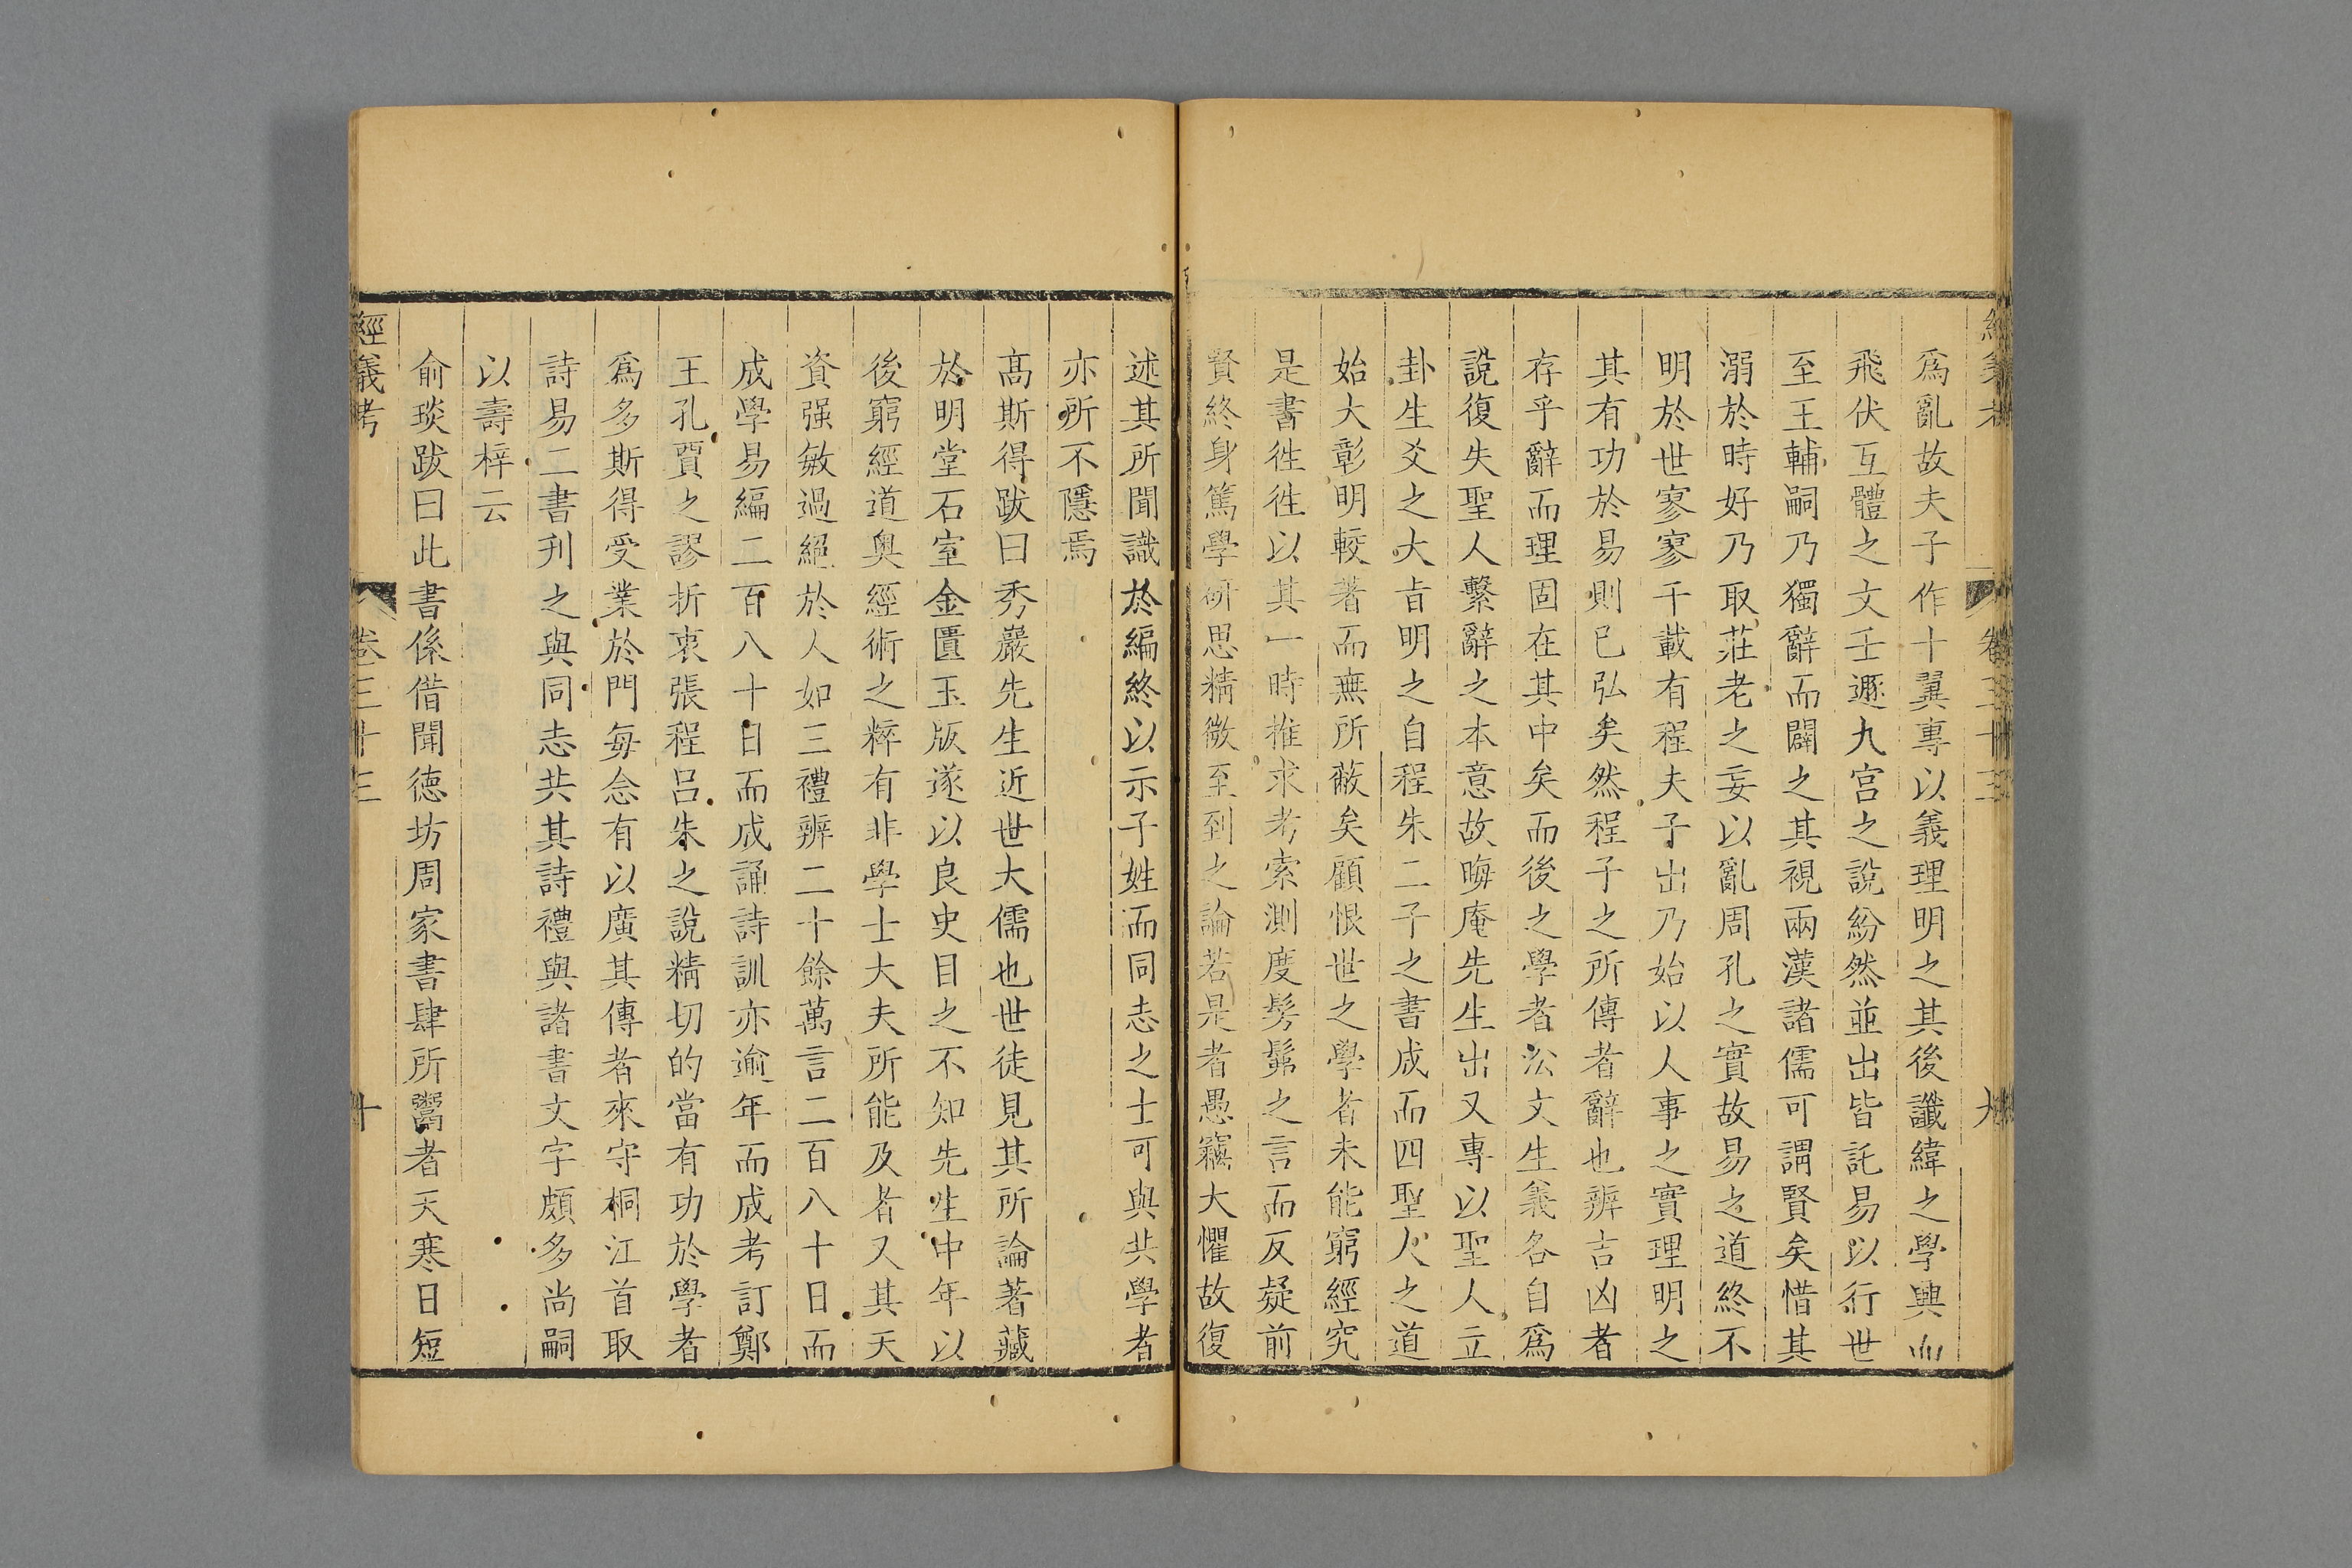 經義考 卷三十三 九
爲亂故夫子作十翼專以義理明之其後讖緯之學興而
飛伏互體之文壬遯九宮之說紛然並出皆託易以行世
至王輔嗣乃獨辭而闢之其視兩漢諸儒可謂賢矣惜其
溺於時好乃取莊老之妄以亂周孔之實故易之道終不
明於世寥寥千載有程夫子出乃始以人事之實理明之
其有功於易則已弘矣然程子之所傳者辭也辨吉凶者
存乎辭而理固在其中矣而後之學者㳂文生義各自爲
說復失聖人繫辭之本意故晦庵先生出又專以聖人立
卦生爻之大旨明之自程朱二子之書成而四聖人之道
始大彰明較著而無所蔽矣顧恨世之學者未能窮經究
是書徃徃以其一時推求考索測度髣髴之言而反疑前
賢終身篤學研思精微至到之論若是者愚竊大懼故復
述其所聞識於編終以示子姓而同志之士可與共學者
亦所不隱焉
高斯得跋曰秀巖先生近世大儒也世徒見其所論著藏
於明堂石室金匱玉版遂以良史目之不知先生中年以
後窮經道奥經術之粹有非學士大夫所能及者又其天
資强敏過絕於人如三禮辨二十餘萬言二百八十日而
成學易編二百八十日而成誦詩訓亦逾年而成考訂鄭
王孔賈之謬折衷張程呂朱之說精切的當有功於學者
爲多斯得受業於門每念有以廣其傳者來守桐江首取
詩易二書刋之與同志共其詩禮與諸書文字頗多尚嗣
以壽梓云
俞琰跋曰此書係借聞德坊周家書肆所鬻者天寒日短
經義考 卷三十三 十